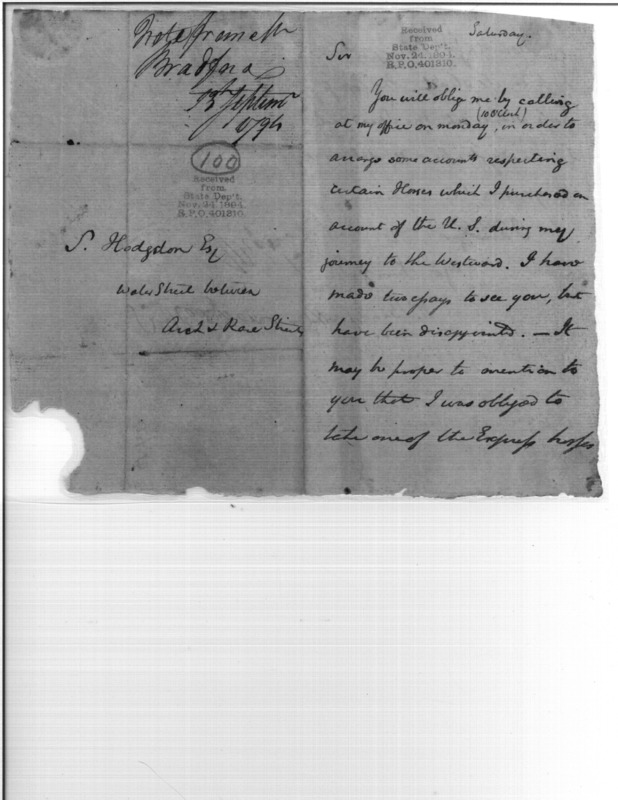 Note from Mr
Bradford
13 Septemr
1794
100
Received
from
State Dep't.
Nov. 24, 1894.
R.P.O. 401310.
S. Hodgdon Esq
Water Street between
Arch & Race Streets
Received
from
State Dep't.
Nov. 24, 1894.
R.P.O. 401310.
Saturday.
Sir
You will oblige me by calling
at my office on monday, (10 oClock) in order to
arrange some accounts respecting
certain Horses which I purchased on
account of the U. S. during my
journey to the Westward. I have
made two essays to see you, but
have been disappointed. — It
may be proper to mention to
you that I was obliged to
take one of the Express horses